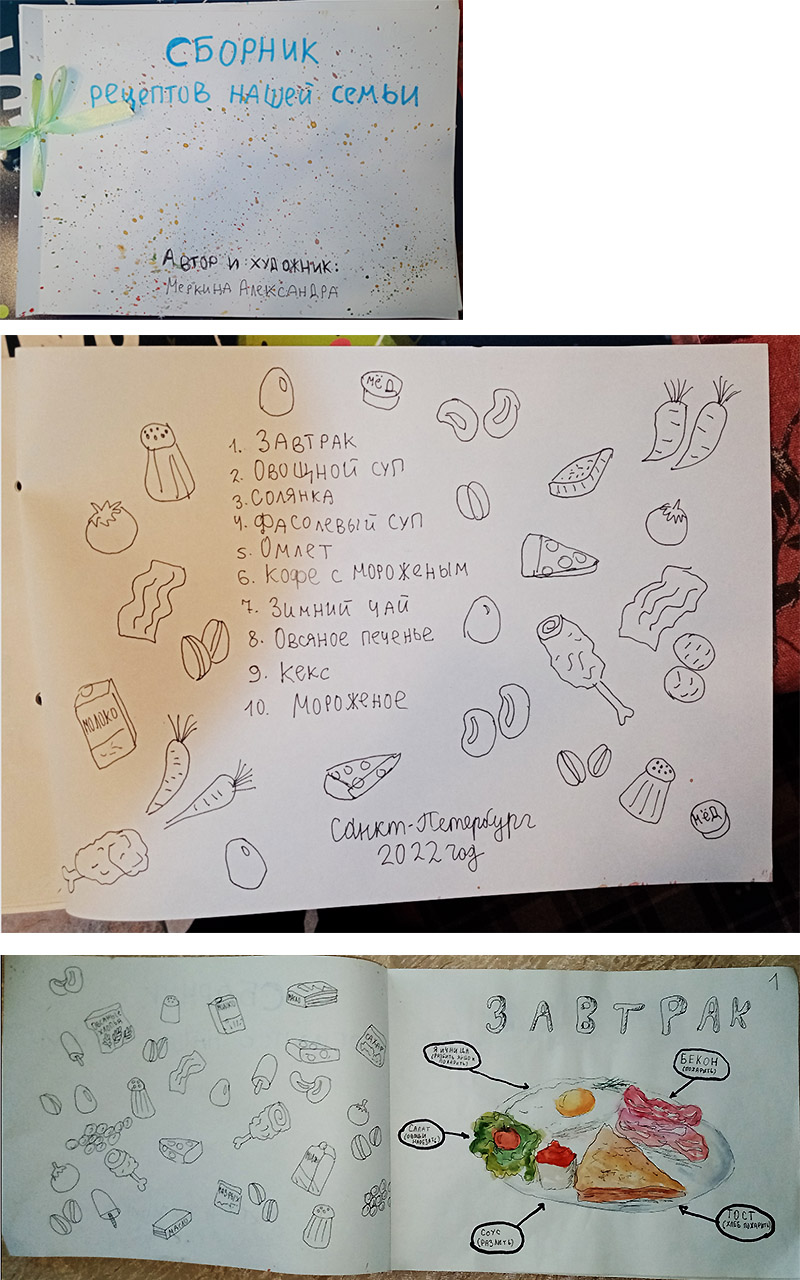 СБОРНИК
РЕЦЕПТОВ НАШЕЙ СЕМЬИ
АВТОР И ХУДОЖНИК:
МЕРКИНА АЛЕКСАНДРА
МЁД
1. ЗАВТРАК
2. ОВОЩНОЙ СУП
3. СОЛЯНКА
4. ФАСОЛЕВЫЙ СУП
5. ОМЛЕТ
6. КОФЕ С МОРОЖЕНЫМ
7. ЗИМНИЙ ЧАЙ
8. ОВСЯНОЕ ПЕЧЕНЬЕ
9. КЕКС
10. МОРОЖЕНОЕ
МОЛОКО
МЁД
Санкт-Петербург
2022 год
МАСЛО
МОЛОКО
ОВСЯНЫЕ
ХЛОПЬЯ
САХАР
МАСЛО
1
ЗАВТРАК
ЯИЧНИЦА
БЕКОН
(ПОЖАРИТЬ)
САЛАТ
(ОВОЩИ
НАРЕЗАТЬ)
СОУС
(РАЗЛИТЬ)
ТОСТ
(ХЛЕБ ПОЖАРИТЬ)